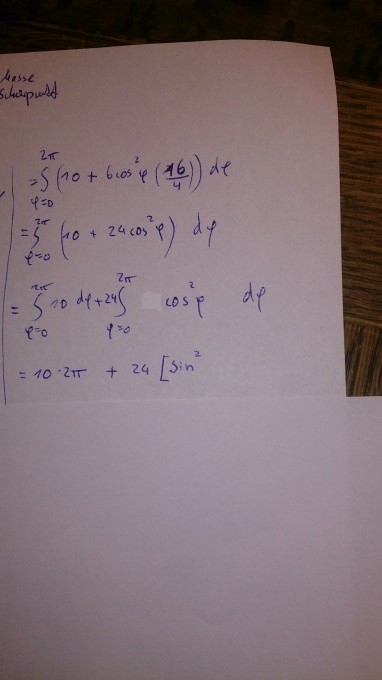 Masse
= ∫_{φ=0}^{2π} (10 + 6cos²φ (16/4)) dφ
= ∫_{φ=0}^{2π} (10 + 24cos²φ) dφ
= ∫_{φ=0}^{2π} 10 dφ + 24 ∫_{φ=0}^{2π} cos²φ dφ
= 10·2π + 24 [sin²